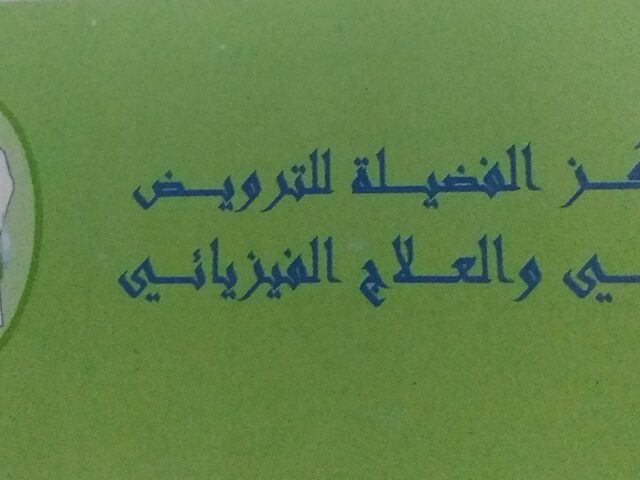 الفضيلة للترويض
والعلاج الفيزيائي